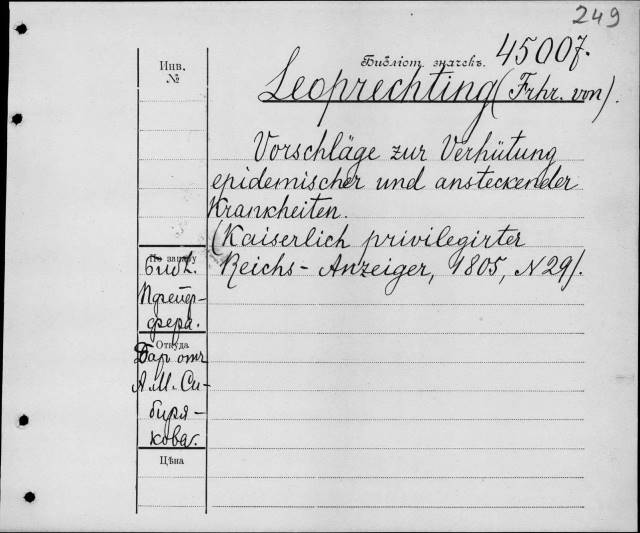 249
Библіот. значекъ. 45007.
Инв.
№
Leoprechting (Frhr. von).
Vorschläge zur Verhütung
epidemischer und ansteckender
Krankheiten.
(Kaiserlich privilegirter
Reichs-Anzeiger, 1805, N 29).
По заказу
Библ.
Пфейф-
фера.
Откуда
Даръ отъ
А.М. Си-
биря-
кова.
Цѣна